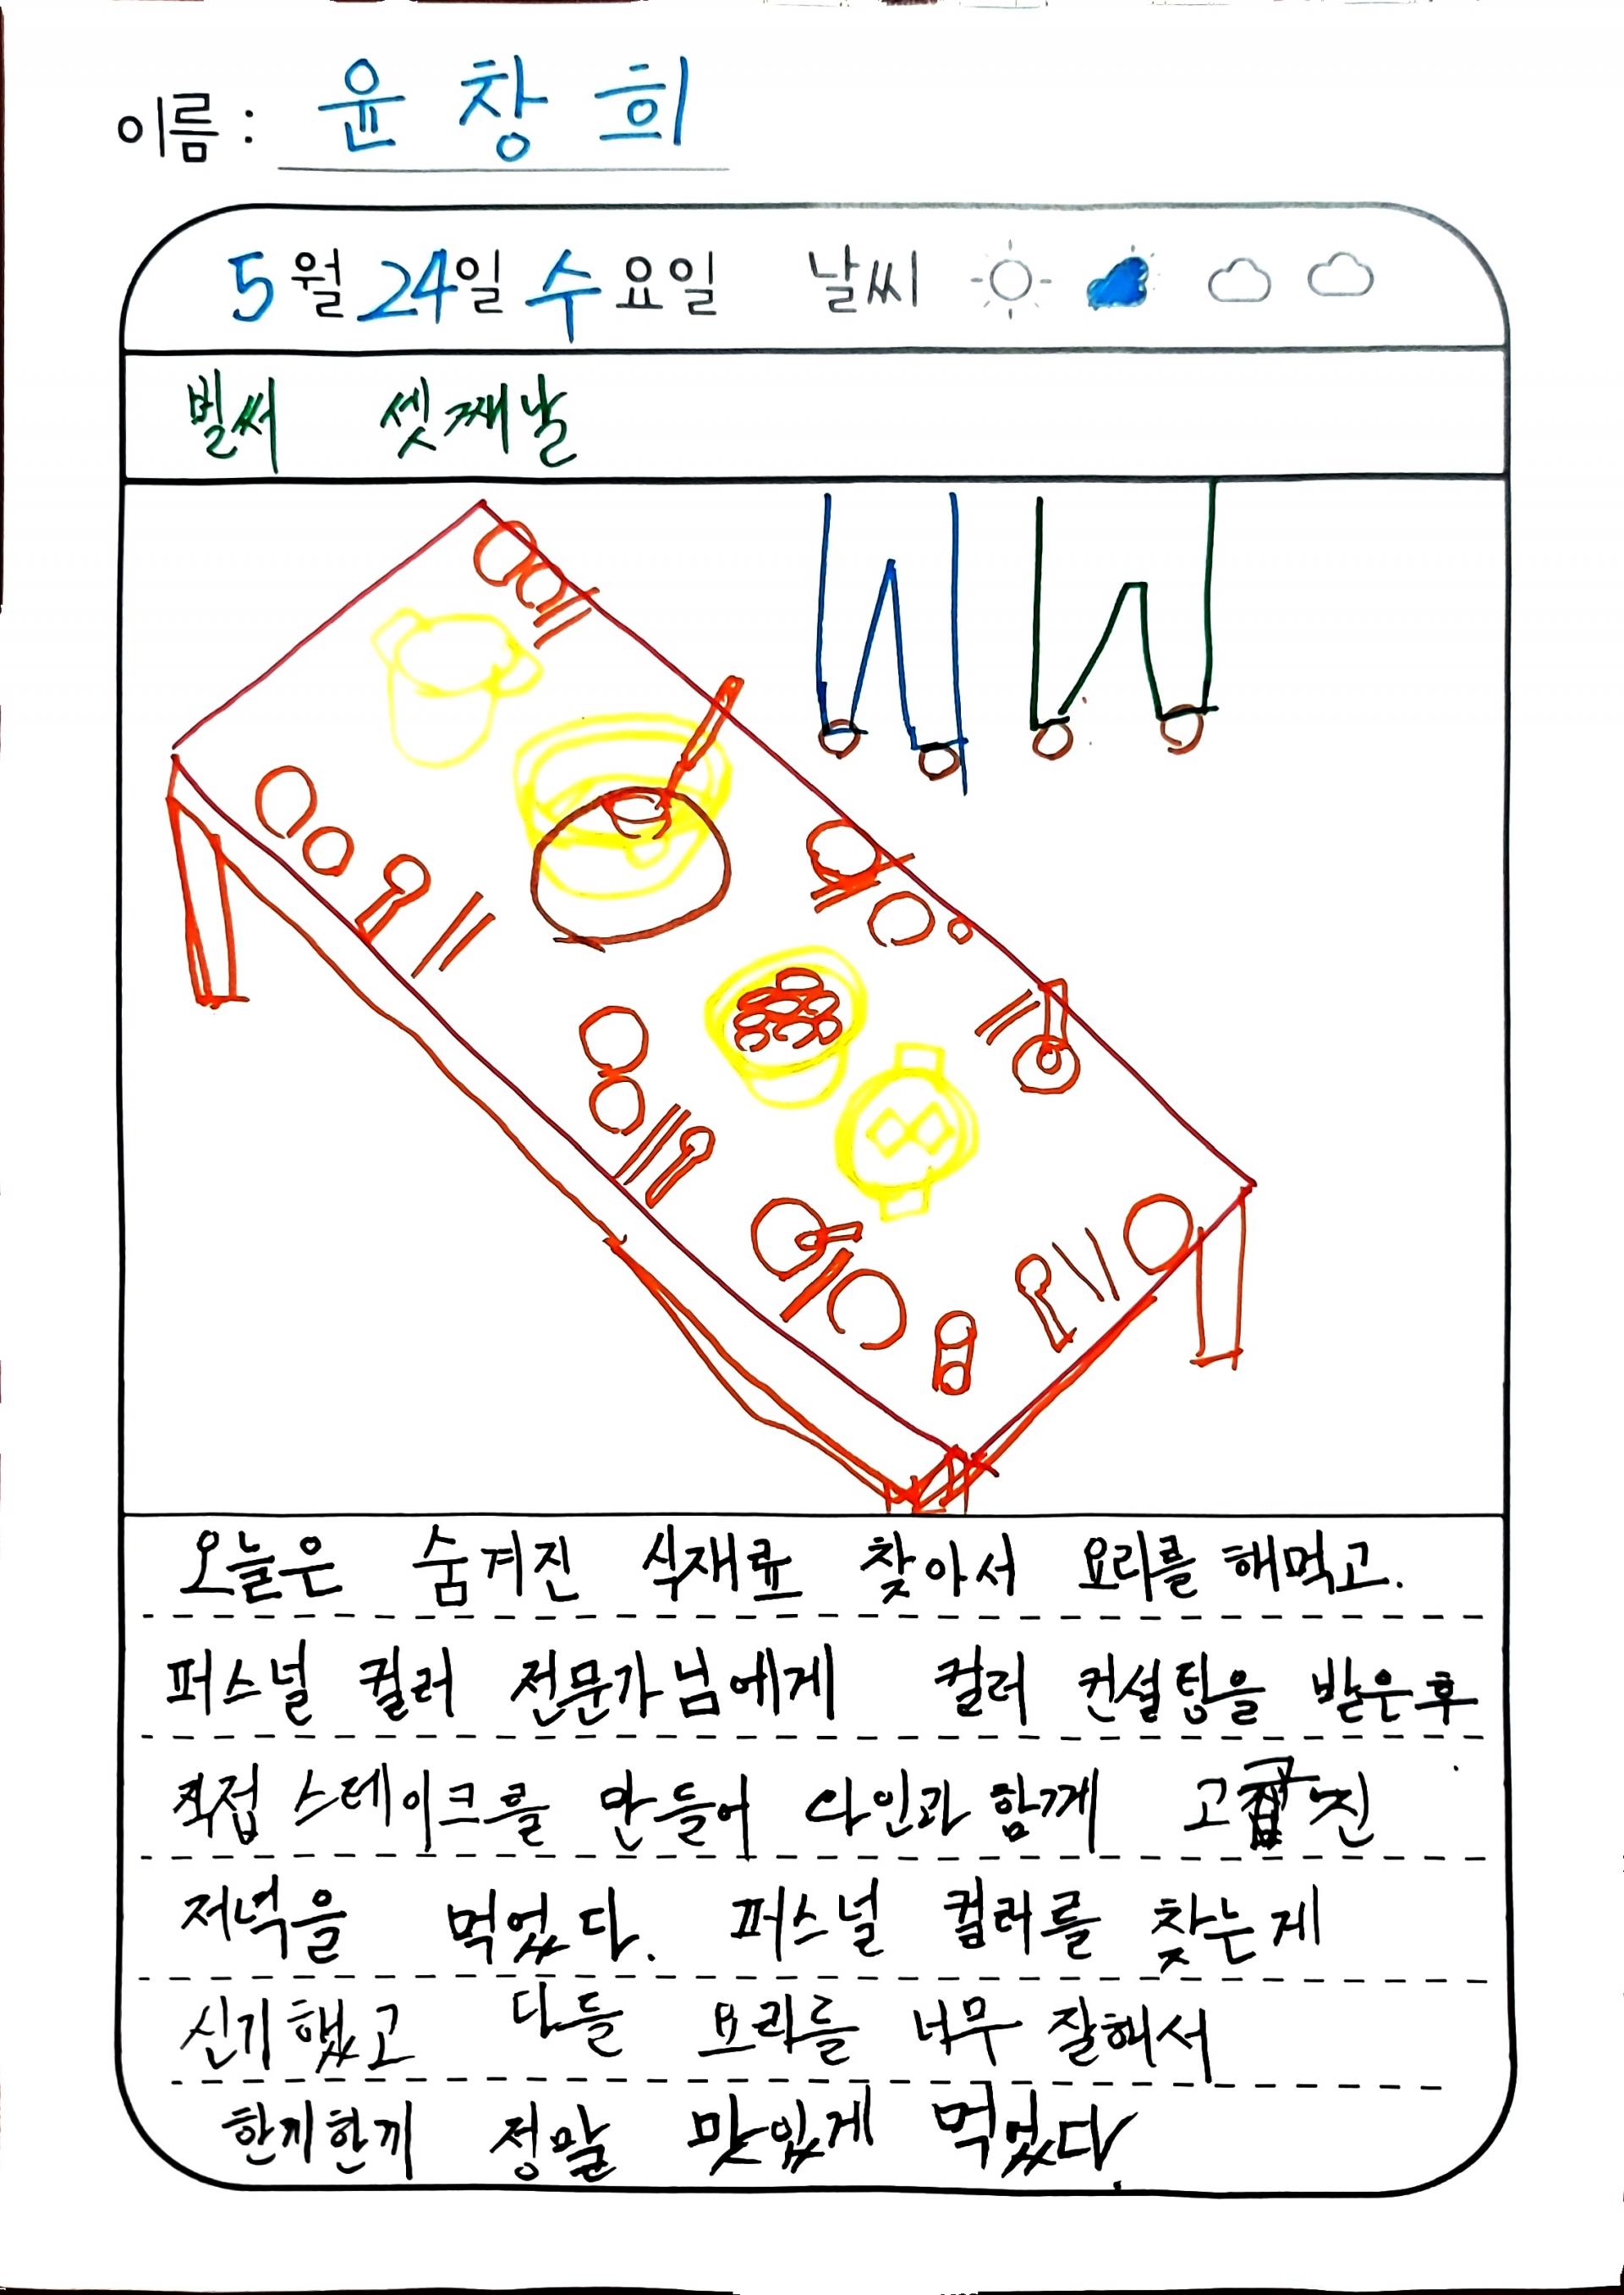 이름 : 윤창희
5월 24일 수요일 날씨
벌써 셋째날
오늘은 숨겨진 식재료 찾아서 요리를 해먹고.
퍼스널 컬러 전문가님에게 컬러 컨설팅을 받은후
직접 스테이크를 만들어 와인과 함께
저녁을 먹었다. 퍼스널 컬러를 찾는게
신기했고 다들 요리를 너무 잘해서
한끼한끼 정말 맛있게 먹었다.